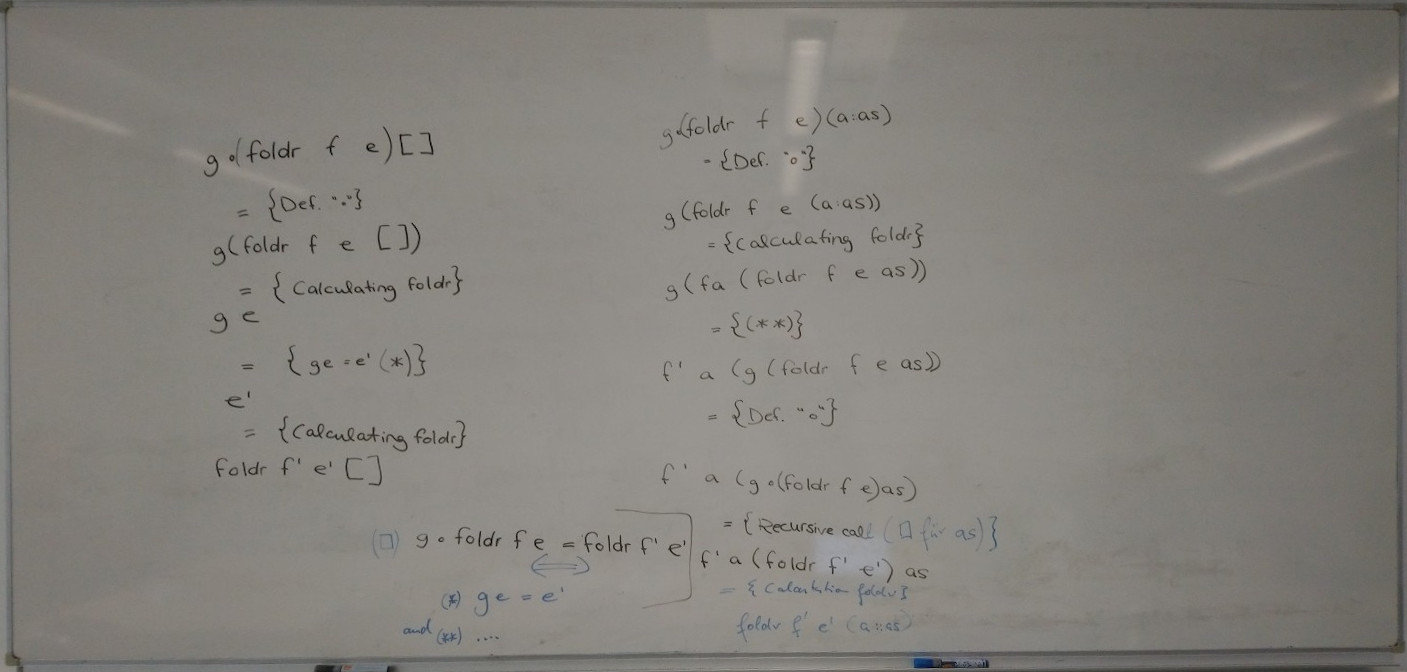 g∘(foldr f e)[]
= {Def. "∘"}
g(foldr f e [])
= { Calculating foldr}
g e
= { ge = e' (*)}
e'
= {Calculating foldr}
foldr f' e' []
g∘(foldr f e)(a:as)
= {Def. "∘"}
g (foldr f e (a:as))
= {Calculating foldr}
g (fa (foldr f e as))
= {(**)}
f' a (g (foldr f e as))
= {Def. "∘"}
f' a (g∘(foldr f e)as)
= {Recursive call (□ für as)}
f' a (foldr f' e') as
= { foldr}
foldr f' e' (a:as)
(□) g ∘ foldr f e = foldr f' e'
⇔
(*) ge = e'
and (**) ....